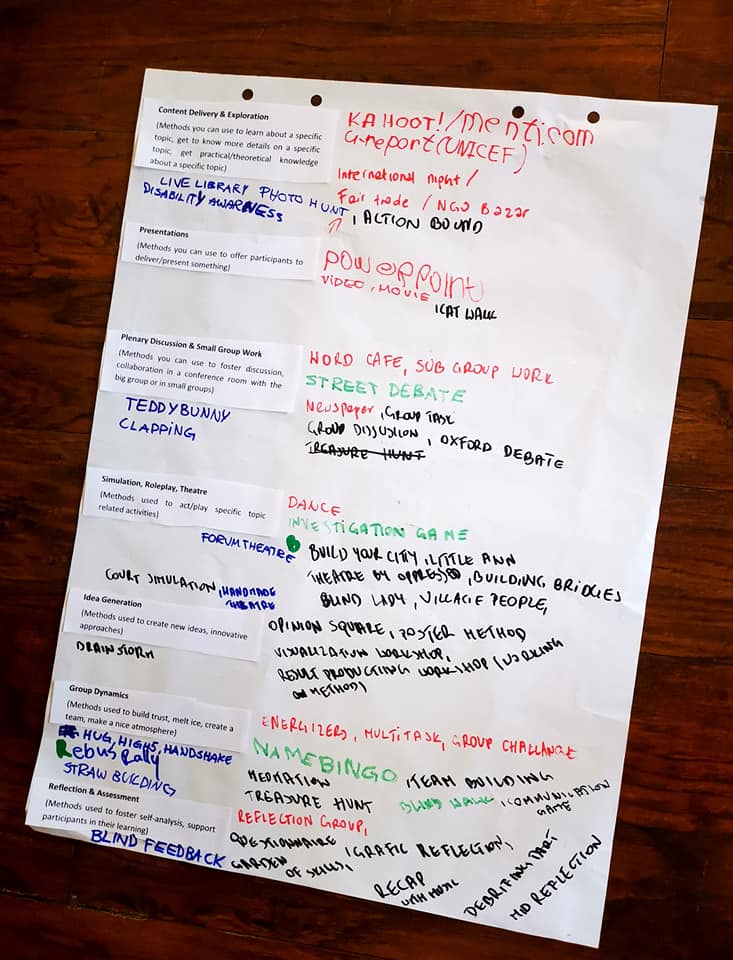 Content Delivery & Exploration
(Methods you can use to learn about a specific
topic, get to know more details on a specific
topic, get practical/theoretical knowledge
about a specific topic)
KAHOOT!/menti.com
U-report(UNICEF)
International night /
Fair trade / NGO Bazar
, ACTION BOUND
LIVE LIBRARY PHOTO HUNT
DISABILITY AWARNESS
Presentations
(Methods you can use to offer participants to
deliver/present something)
POWERPOINT
VIDEO, MOVIE
, CAT WALK
Plenary Discussion & Small Group Work
(Methods you can use to foster discussion,
collaboration in a conference room with the
big group or in small groups)
WORD CAFE, SUB GROUP WORK
STREET DEBATE
Newspaper, GROUP TASK
GROUP DISSUSION, OXFORD DEBATE
TREASURE HUNT
TEDDYBUNNY
CLAPPING
Simulation, Roleplay, Theatre
(Methods used to act/play specific topic
related activities)
DANCE
INVESTIGATION GAME
FORUM THEATRE
BUILD YOUR CITY, LITTLE ANN
THEATRE BY OPPRESSED, BUILDING BRIDGES
BLIND LADY, VILLAGE PEOPLE,
COURT SIMULATION, HANDMADE
THEATRE
Idea Generation
(Methods used to create new ideas, innovative
approaches)
OPINION SQUARE, POSTER METHOD
VISUALIZATION WORKSHOP,
RESULT PRODUCTING WORKSHOP (WORKING
ON METHOD)
BRAINSTORM
Group Dynamics
(Methods used to build trust, melt ice, create a
team, make a nice atmosphere)
ENERGIZERS, MULTITASK, GROUP CHALLANGE
HUG, HIGH5, HANDSHAKE
Rebus rally
STRAW BUILDING
NAMEBINGO
, TEAM BUILDING
MEDIATION
TREASURE HUNT
BLIND WALK
, COMMUNICATION
GAME
Reflection & Assessment
(Methods used to foster self-analysis, support
participants in their learning)
REFLECTION GROUP,
QUESTIONNAIRE, GRAFIC REFLECTION,
BLIND FEEDBACK
GARDEN
OF SKILLS,
RECAP
WITH MUSIC
DEBRIFING PART
MID REFLECTION